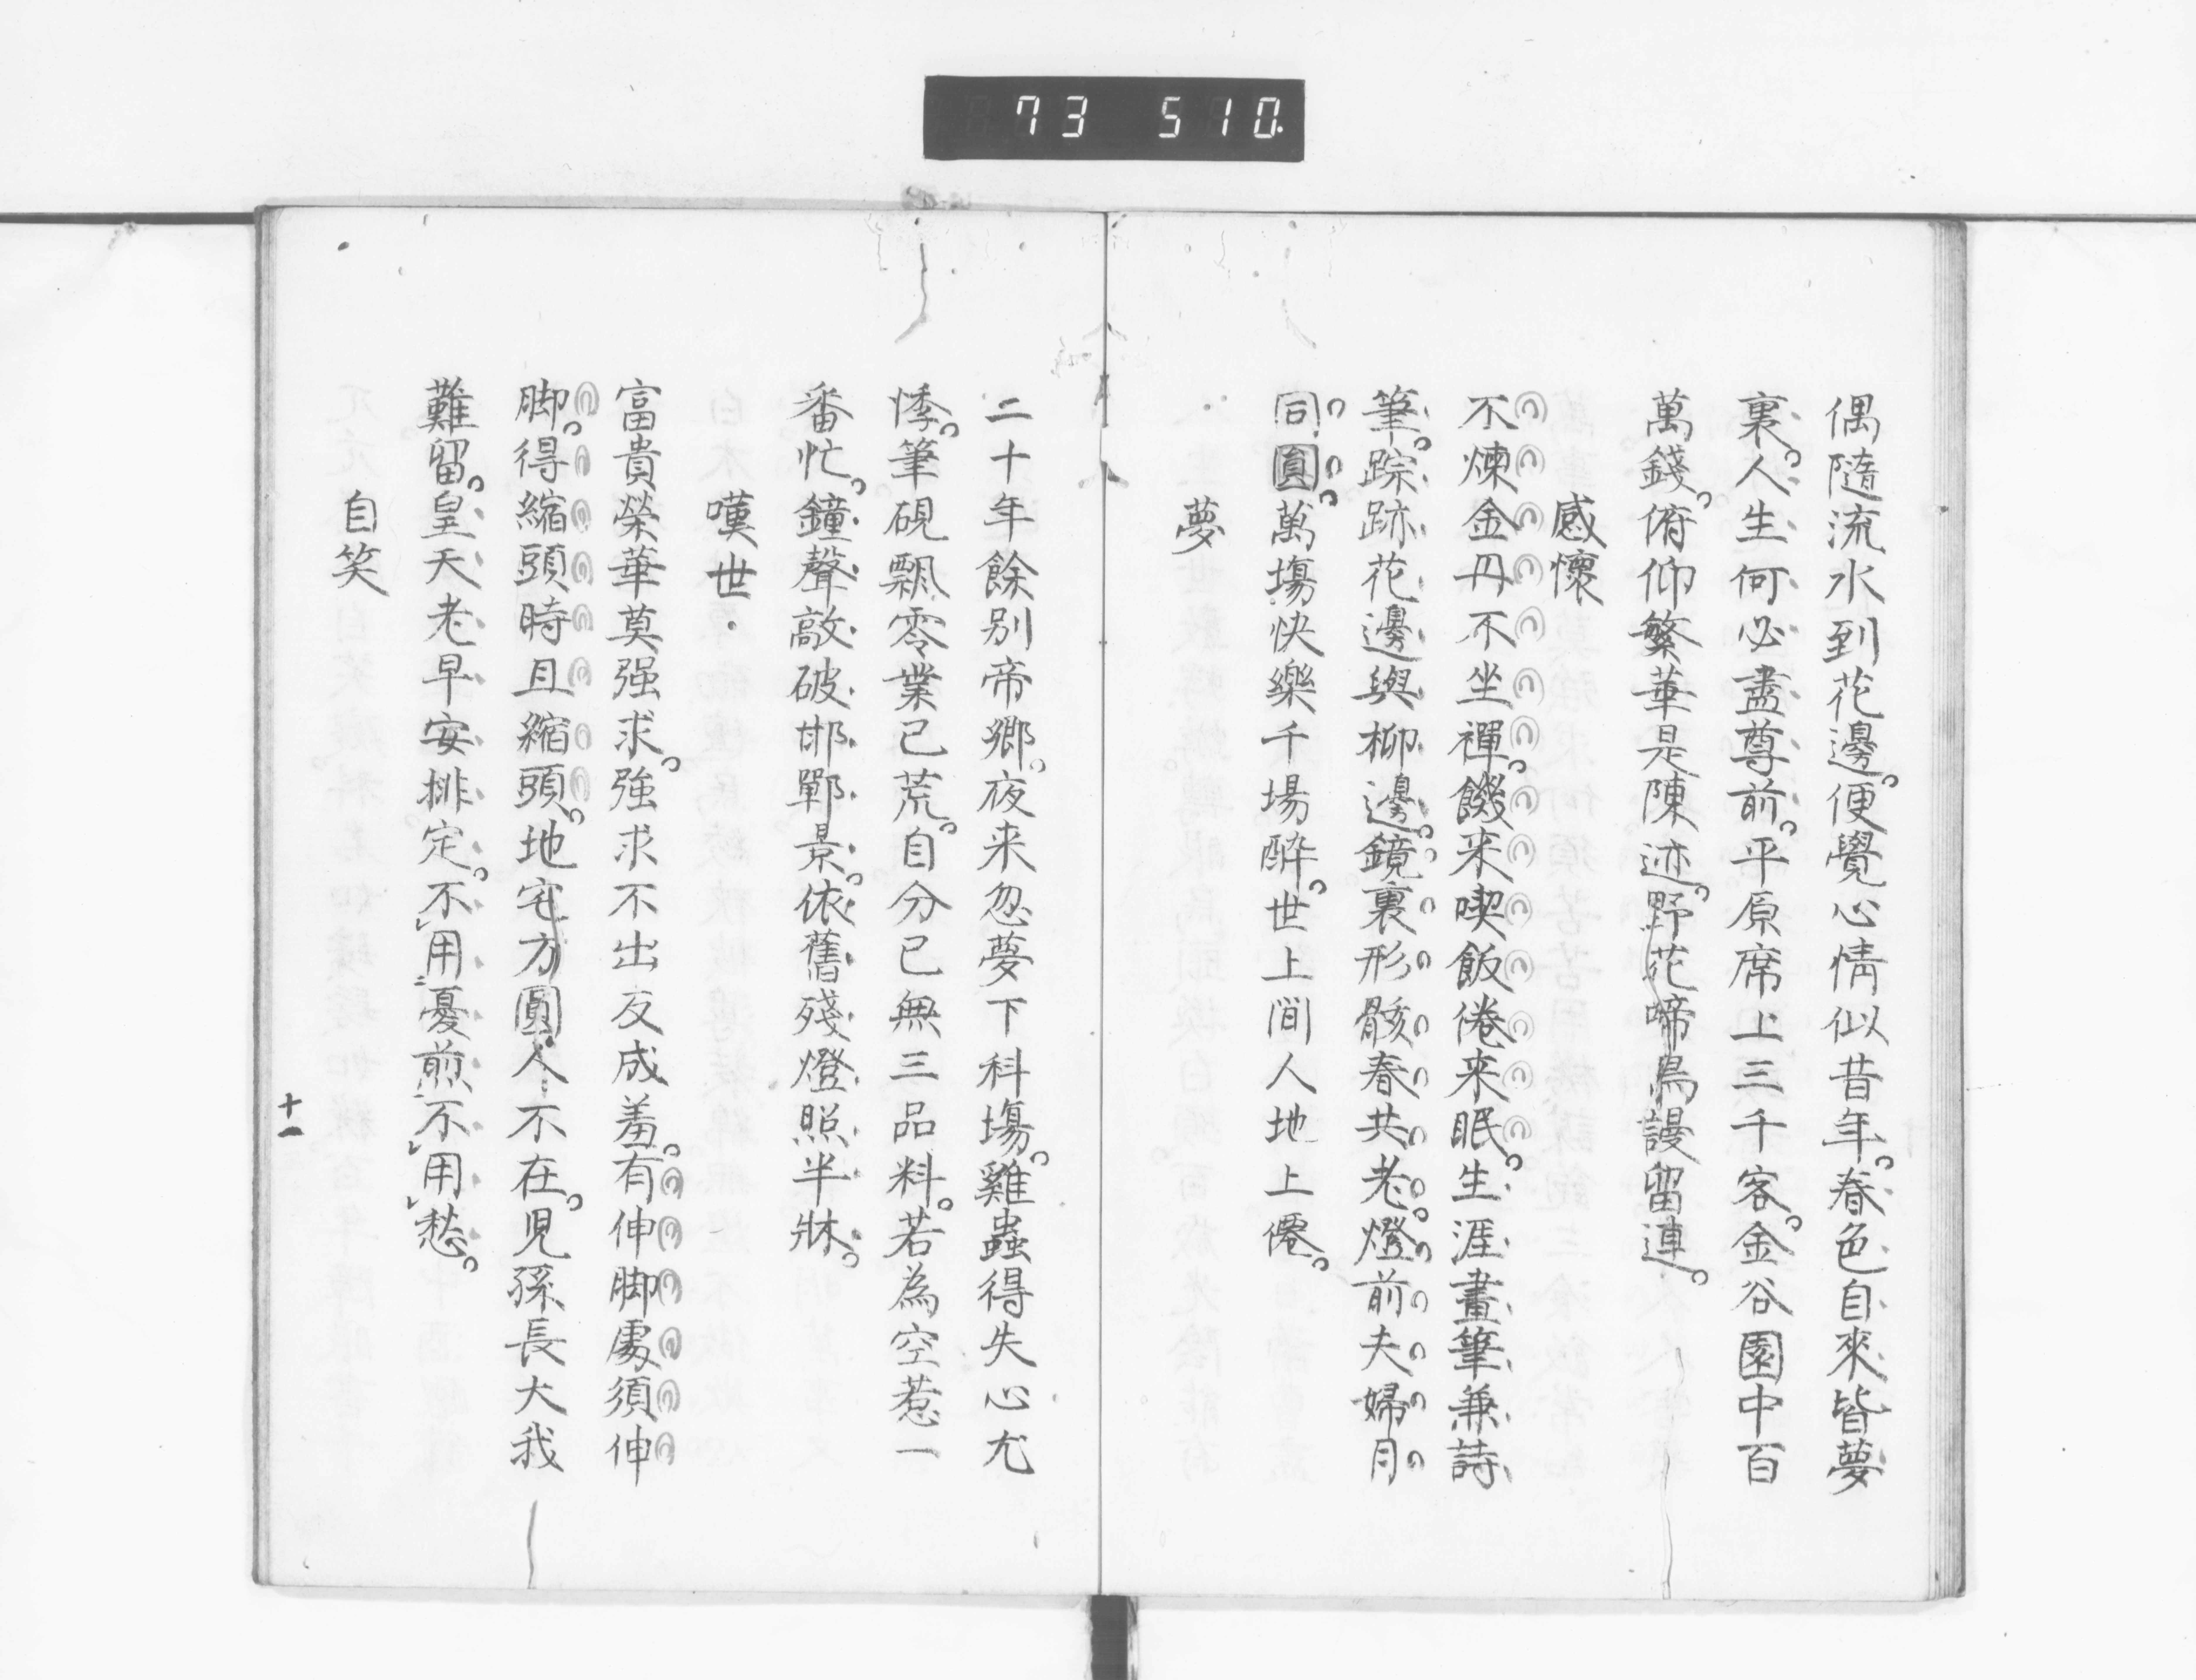 73 510.
偶隨流水到花邊便覺心情似昔年春色自來皆夢
裏人生何必盡尊前平原席上三千客金谷園中百
萬錢俯仰繁華是陳迹野花啼鳥謾留連
感懷
不煉金丹不坐禪饑来喫飯倦来眠生涯畫筆兼詩
筆踪跡花邊與柳邊鏡裏形骸春共老燈前夫婦月
同圓萬塲快樂千場醉世上間人地上僊
夢
二十年餘别帝鄉夜来忽夢下科塲雞蟲得失心尤
悸筆硯飄零業已荒自分已無三品料若為空惹一
番忙鐘聲敲破邯鄲景依舊殘燈照半牀
嘆世
富貴榮華莫强求強求不出反成羞有伸脚處須伸
脚得縮頭時且縮頭地宅方圓人不在児孫長大我
難留皇天老早安排定不用憂煎不用愁
自笑
十一